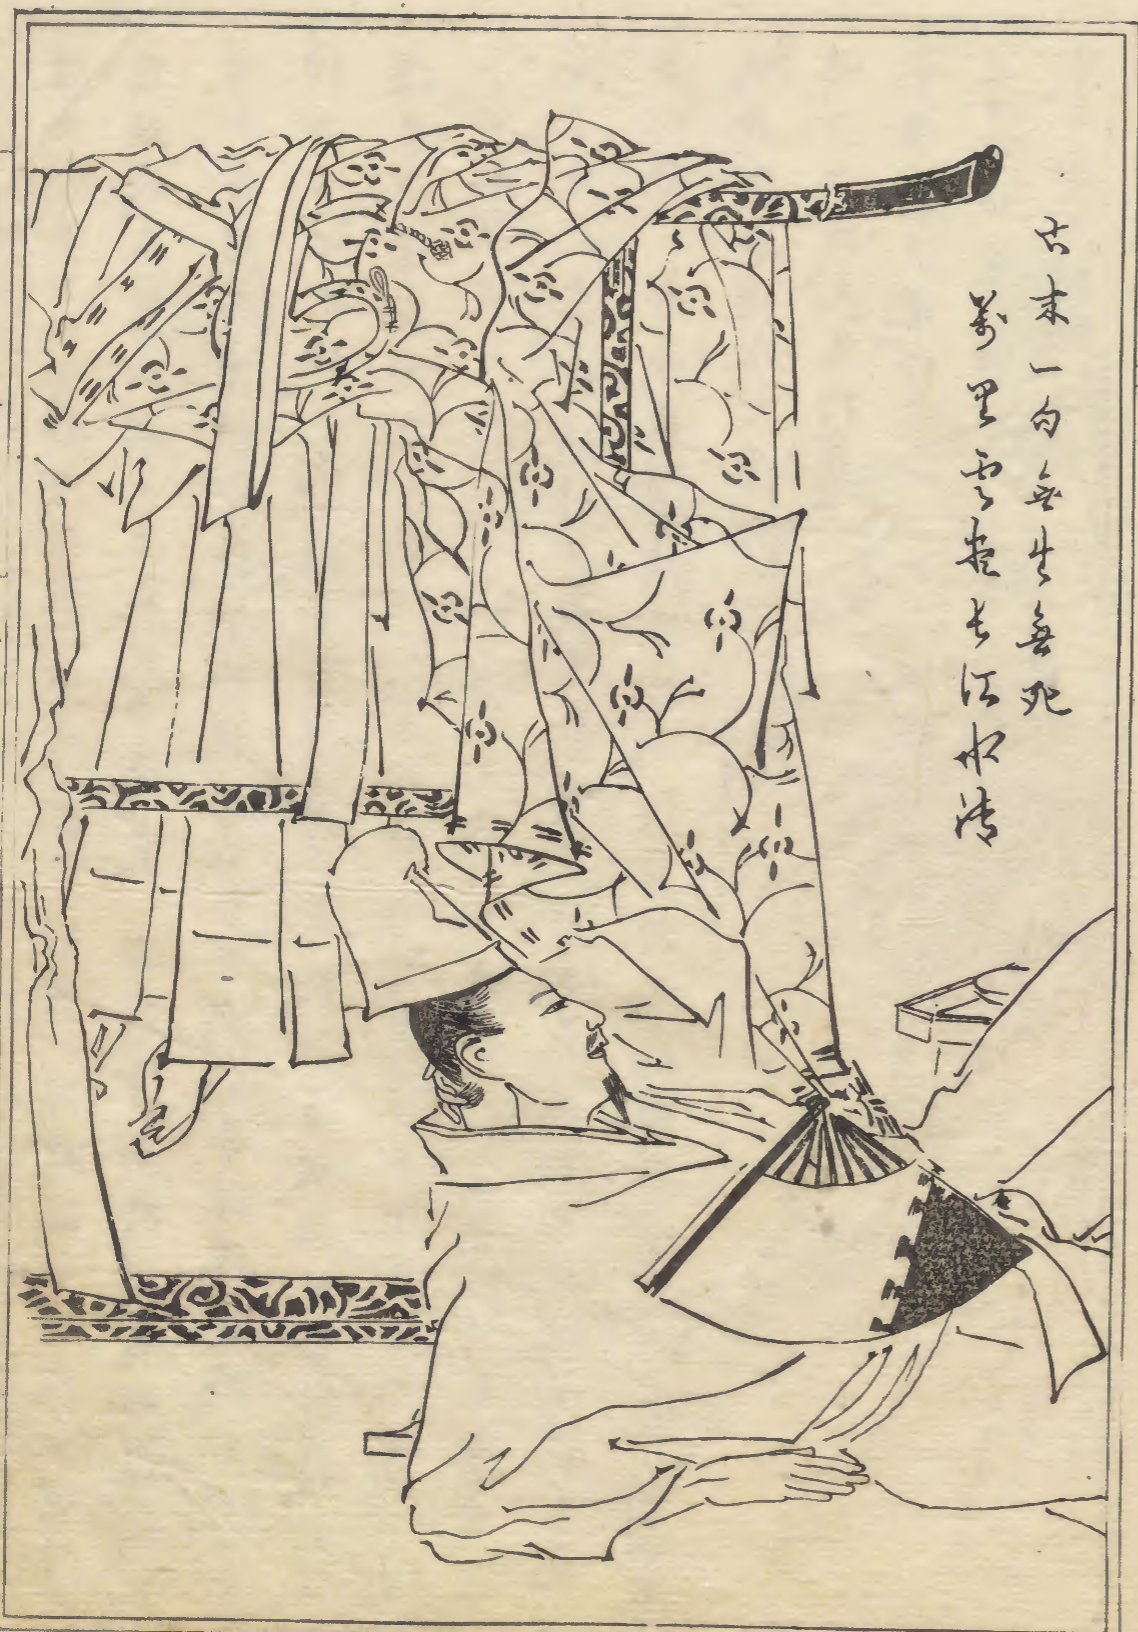 古来一句無生無死
萬里雲盡長江水清